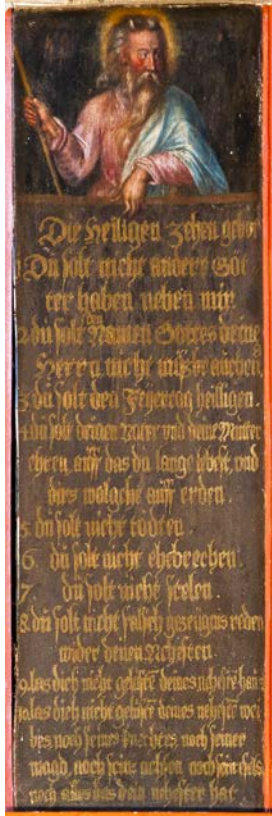 Die Heiligen Zehen gebot
1 Du solt nicht andere Göt
ter haben neben mir
2 du solt den Namen Gottes deines
Herrn nicht mißbrauchen
3 du solt den Feyertag heiligen.
4 du solt deinen Vater vnd deine Mutter
ehren auff das du lange lebest vnd
dirs wolgehe auff erden.
5 du solt nicht tödten.
6. du solt nicht ehebrechen.
7. du solt nicht steelen.
8. du solt nicht falsch gezeugnis reden
wider deinen Nehesten
9. las dich nicht gelüsten deines nehesten haus
10. las dich nicht gelüsten deines nehesten wei
bes noch seines knechtes noch seiner
magd noch seins ochsen noch sein esels
noch alles das dein nehester hat